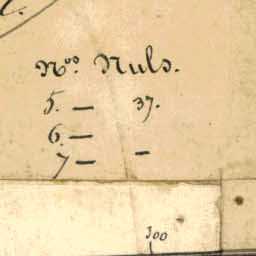 Nos. Nuls.
5. — 37.
6. —
7 — —
300